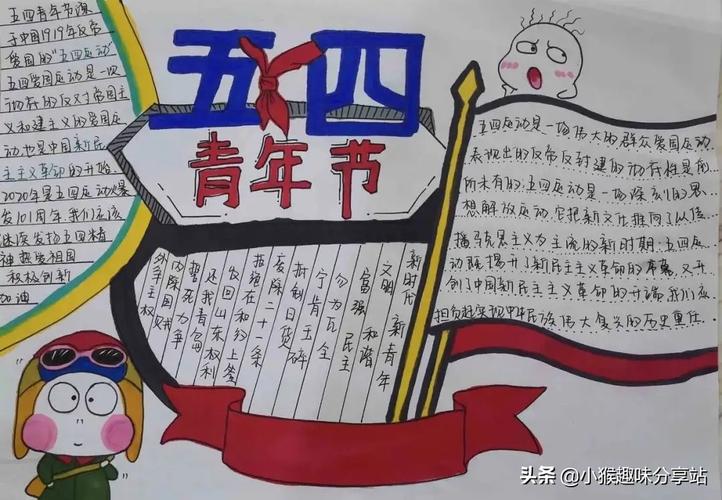 五四青年节
五四青年节源
于中国1919年反帝
爱国的"五四运动"
五四爱国运动是一次
彻底的反对帝国主
义和封建主义的爱国运
动也是中国新民
主主义革命的开始
2020年是五四运动爆
发101周年 我们应该
继续发扬五四精
神 热爱祖国
积极创新
加油
新时代 新青年
文明 和谐
富强 民主
勿为瓦全
宁肯玉碎
抵制日货
废除二十一条
拒绝在和约上签
收回山东权利
还我青岛
誓死力争
内除国贼
外争主权
五四运动是一场伟大的群众爱国运动
表现出的反帝反封建的彻底性是前
所未有的 五四运动是一场深刻的思
想解放运动 它把新文化推向了以传
播马克思主义为主流的新时期 五四运
动既揭开了新民主主义革命的序幕 又开
创了中国新民主主义革命的开端 我们应
担负起实现中华民族伟大复兴的历史重任
头条 @小猴趣味分享站